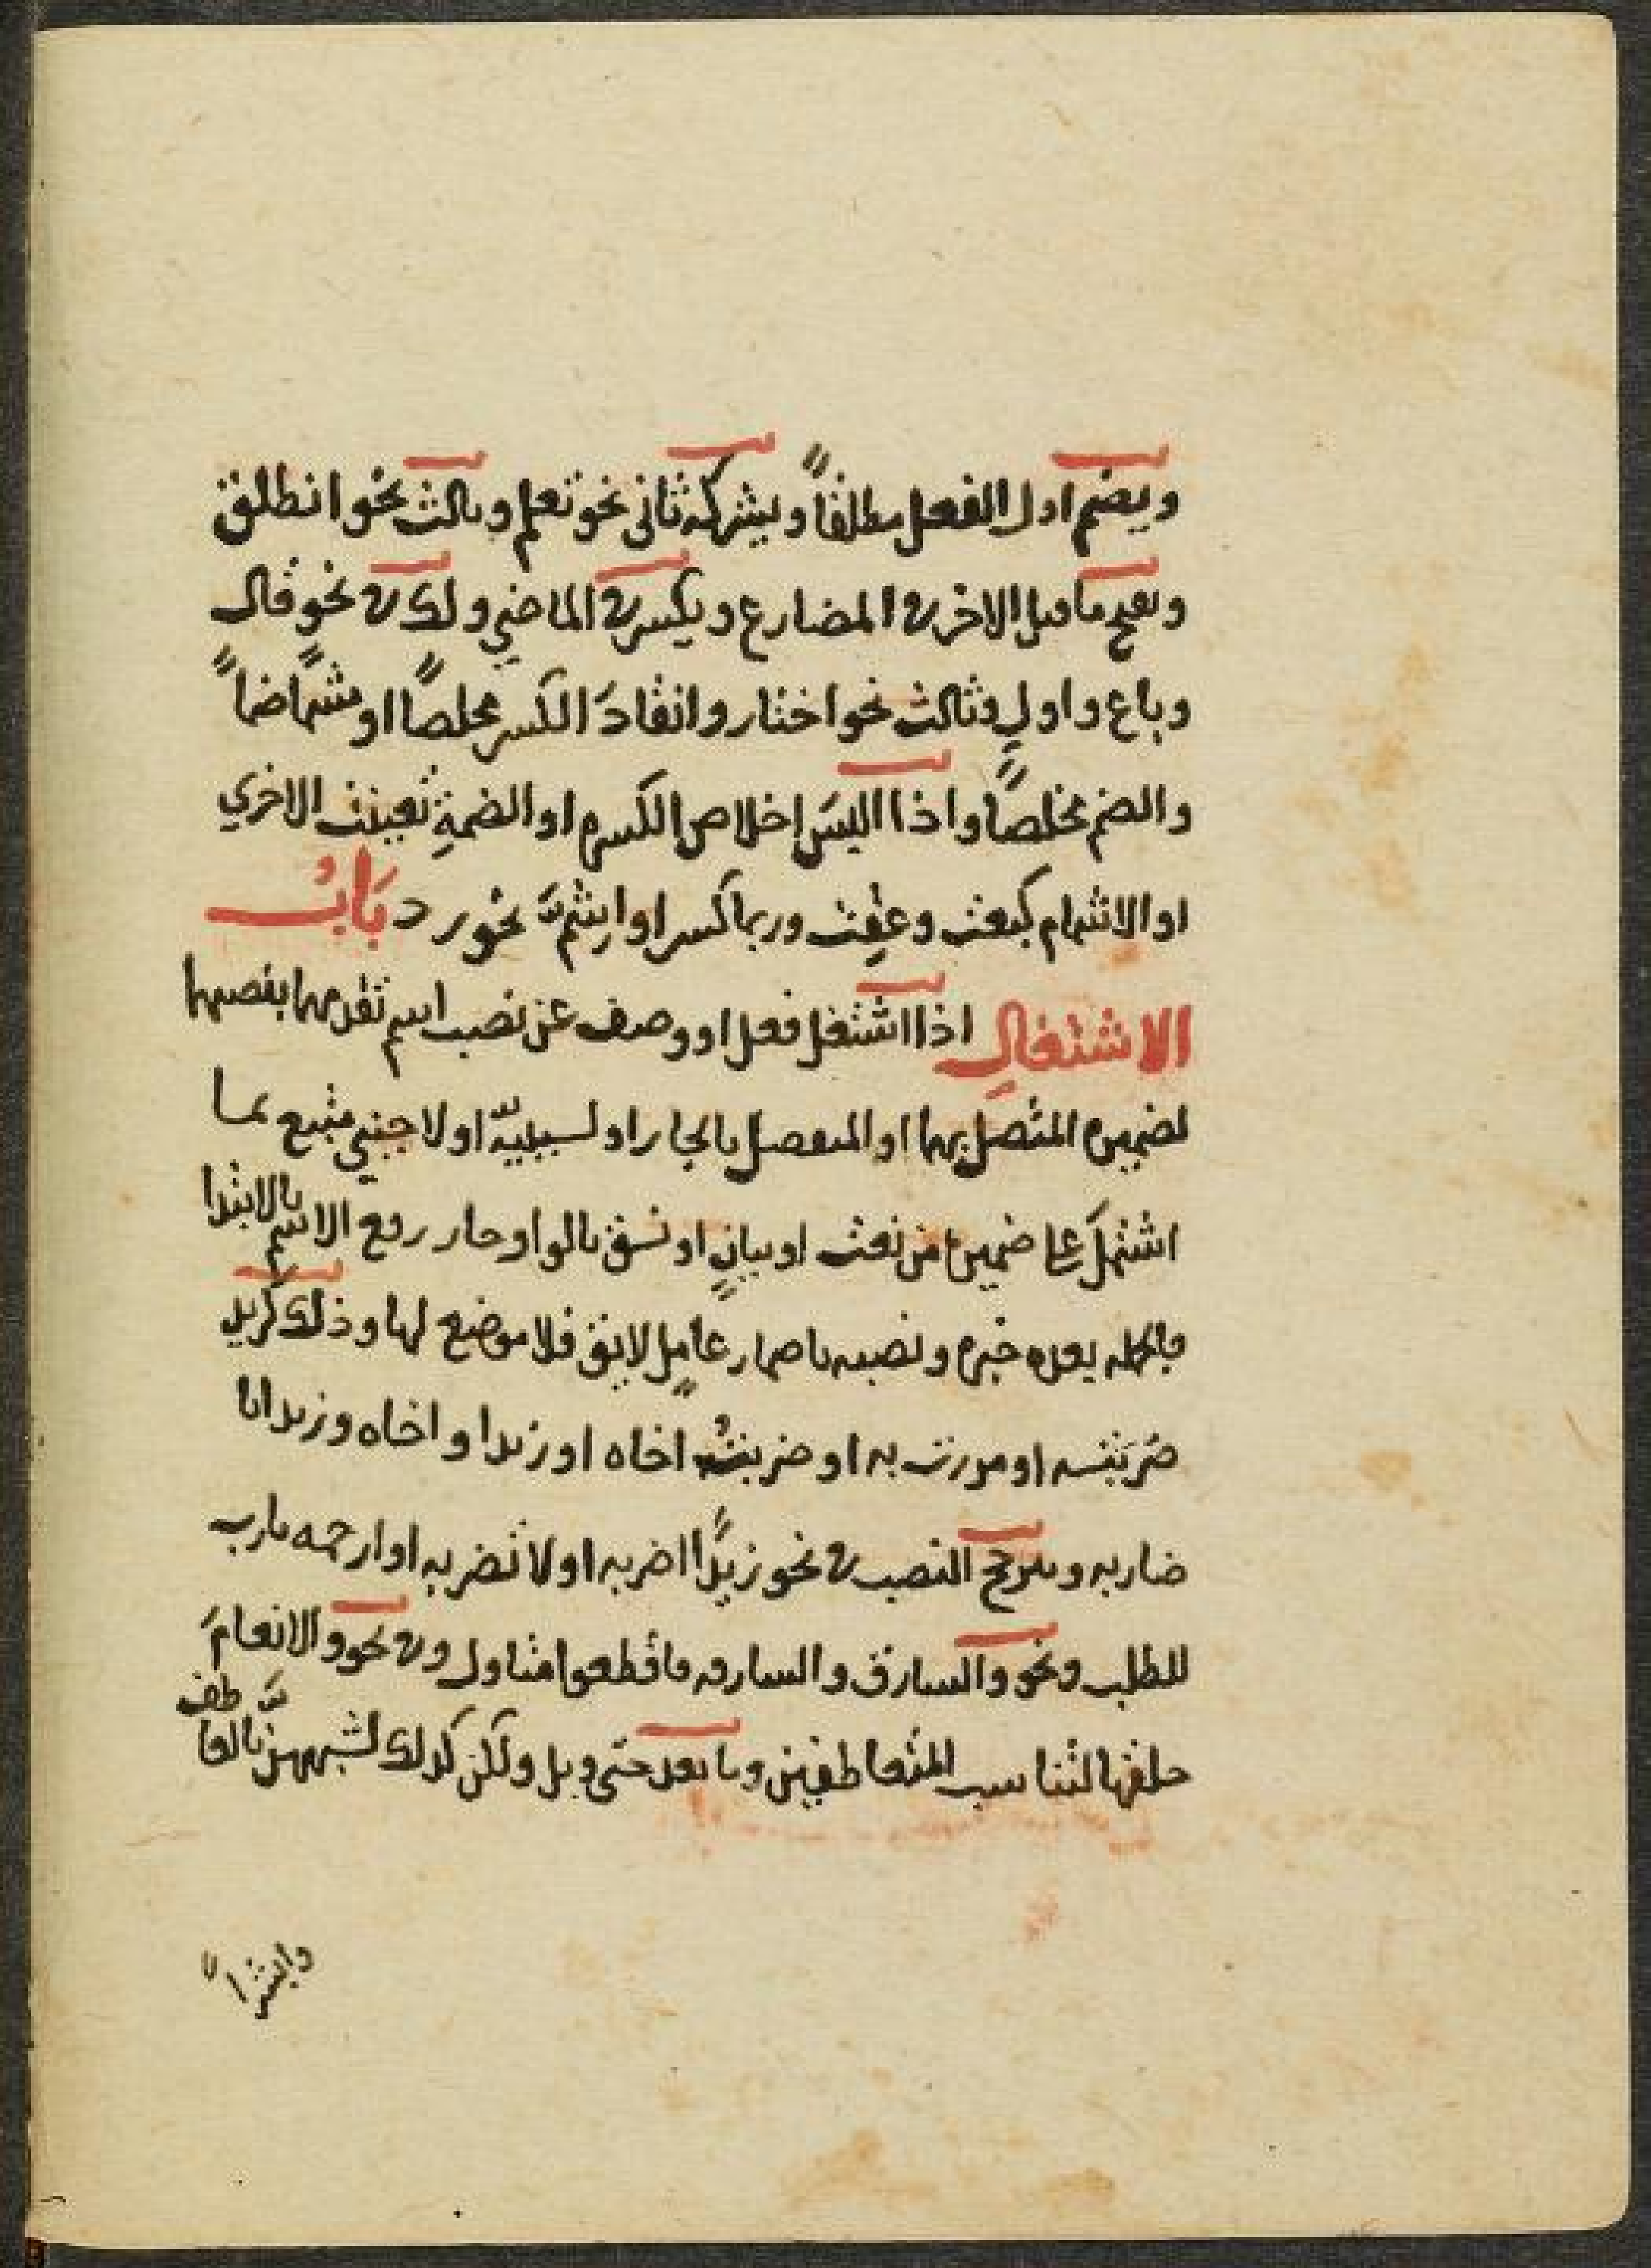 ويضم اول الفعل مطلقاً ويشركه ثاني نحو تعلم وثالث نحو انطلق
ويفتح ما قبل الاخر في المضارع ويكسر في الماضي ولك في نحو قال
وباع واولٍ وثالث نحو اختار وانقادَ الكسر مخلصًا او مشمًا ضماً
والضم مخلصًا واذا البسَ اخلاص الكسرة او الضمةِ تعينت الاخري
او الاشمام كبعت وعقت وربما كسر او اشمّ نحو رد بَابُ
الاشتغالِ اذا اشتغل فعل او وصف عن نصب اسم تقدمهما بنصبهما
لضميره المتصل بهما او المنفصل بالجار او لسببيه او لاجنبي متبع بما
اشتمل على ضميره من نعت او بيانٍ او نسق بالواو جاز رفع الاسم بالابتدا
فالجملة بعده خبره ونصبه باضمار عاملٍ لايق فلا موضع لها وذلك كزيد
ضَربته او مررت به او ضربتُ اخاه او زيدا واخاه وزيدا انا
ضاربه ويترجح النصب في نحو زيدًا اضربه او لا تضربه او ارحمه يارب
للطلب ونحو والسارق والسارقة فاقطعوا متاول وفي نحو والانعامَ
خلقها لتناسب المتعاطفين وما بعد حتى وبل ولكن كذلك لشبههن بالعاطف
وابشراً